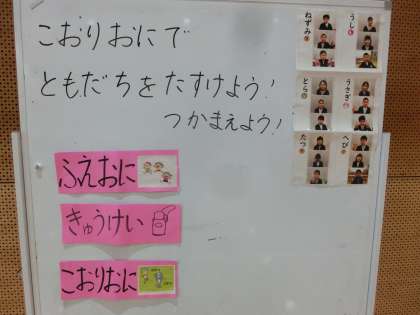 こおりおにで
ともだちをたすけよう！
つかまえよう！
ふえおに
きゅうけい
こおりおに
ねずみ
うし
とら
うさぎ
たつ
へび